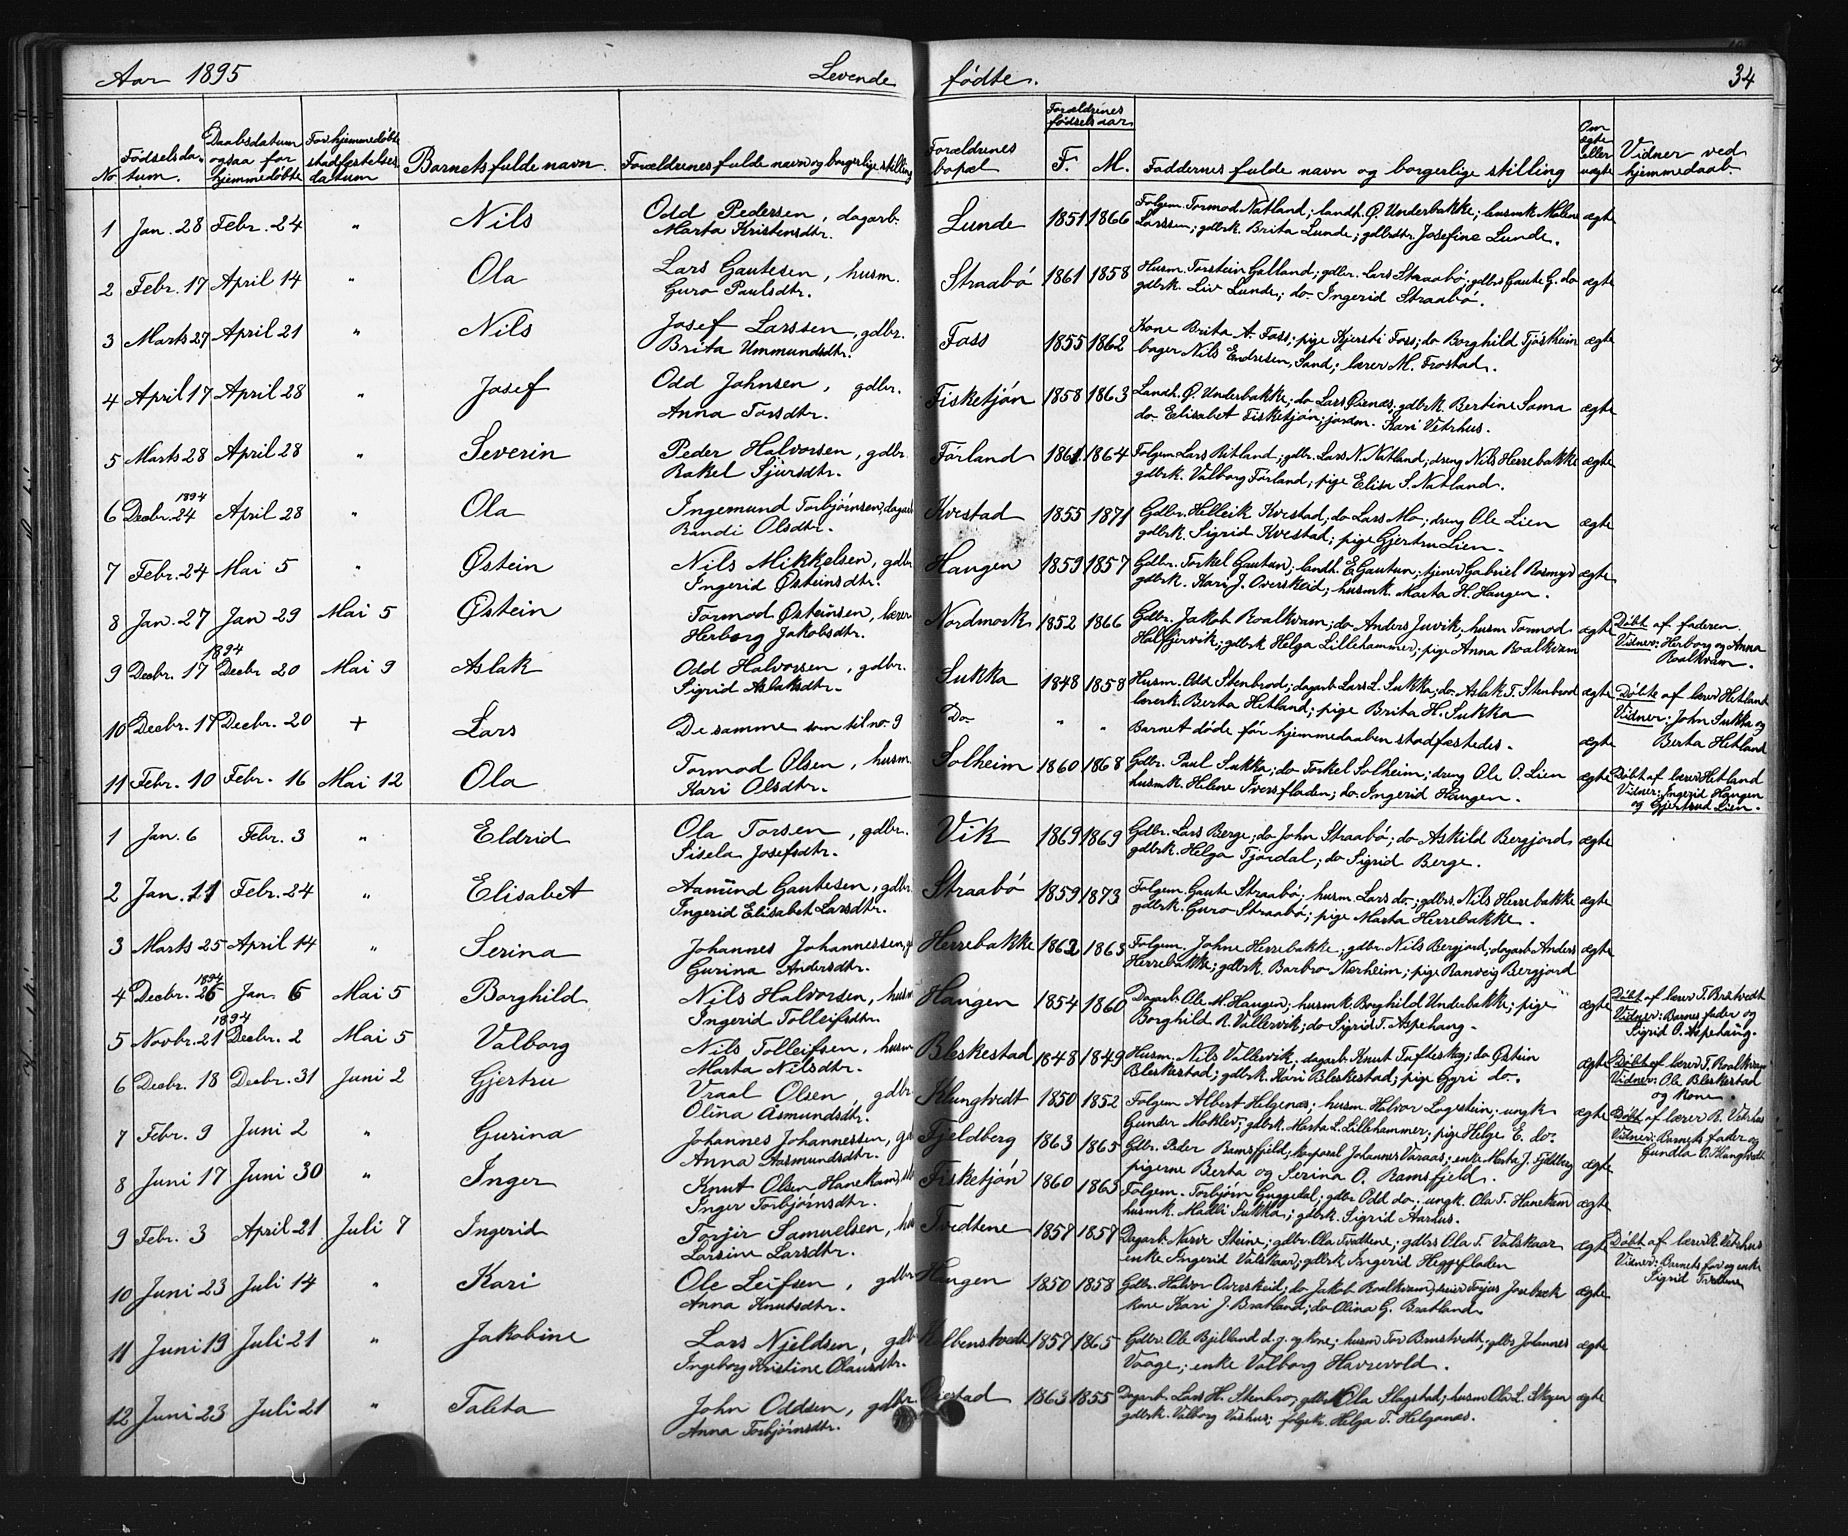 Aar 1895 Levende fødte. 34
No Fødselsdatum. Daabsdatum ogsaa for hjemmedøbte For hjemmedøbte stadfæstelsesdatum Barnets fulde navn. Forældrenes fulde navn og borgerlige stilling Forældrenes bopæl Forældrenes fødselsaar F. M. Faddernes fulde navn og borgerlige stilling Om ægte eller uægte Vidner ved hjemmedaab.
1 Jan. 28 Febr. 24 " Nils Odd Pedersen, dagarb. Lunde 1851 1866 Folgem. Tormod Natland; landh. Ø. Underbakke; husmk Malene ægte
Marta Kristensdtr. Larssen; gdbrk. Brita Lunde; gdbrdtr. Josefine Lunde.
2 Febr. 17 April 14 " Ola Lars Gautesen, husm. Straabø 1861 1858 Husm. Torstein Galland; gdbr. Lars Straabø; gdbrs Gaute G. do ægte
Guro Paulsdtr. gdbrk. Liv Lunde; do Ingerid Straabø.
3 Marts 27 April 21 " Nils Josef Larssen, gdbr. Foss 1855 1862 Kone Brita A. Foss; pige Kjersti Foss; do Borghild Tjøstheim ægte
Brita Ummundsdtr. bager Nils Endresen, Sand; lærer M. Frostad.
4 April 17 April 28 " Josef Odd Johnsen, gdbr. Fisketjøn 1858 1863 Landh. Ø. Underbakke; do Lars Øienæs; gdbrk. Bertine Soma ægte
Anna Torsdtr. do Elisabet Fisketjøn; jordm. Kari Vetrhus.
5 Marts 28 April 28 " Severin Peder Halvorsen, gdbr. Førland 1861 1864 Folgem Lars Ritland; gdbr. Lars N. Natland; dreng Nils Herrebakke ægte
Rakel Sjursdtr. gdbrk. Valborg Førland; pige Elisa S. Natland.
6 Decbr. 24 1894 April 28 " Ola Ingemund Torbjørnsen, dagarb Kvestad 1855 1871 Gdbr. Helleik Kvestad; do Lars Mo; dreng Ole Lien ægte
Randi Olsdtr. gdbrk. Sigrid Kvestad; pige Gjertru Lien.
7 Febr. 24 Mai 5 " Østein Nils Mikkelsen, gdbr Haugen 1859 1857 Gdbr. Torkel Gautun; landh. E. Gautun; tjener Gabriel Rosmyr ægte
Ingerid Østeinsdtr. gdbrk. Kari J. Overskeid; husmk. Marta H. Haugen.
8 Jan. 27 Jan 29 Mai 5 Østein Tormod Østeinsen, lærer Nordmork 1852 1866 Gdbr. Jakob Roalkvam; do Anders Juvik; husm Tormod ægte Døbt af faderen.
Herborg Jakobsdtr. gdbrk Helga Lillehammer; pige Anna Roalkvam Vidner: Herborg og Anna Roalkvam.
9 Decbr. 17 1894 Decbr 20 Mai 9 Aslak Odd Halvorsen, gdbr. Sukka 1848 1858 Husm. Odd Stenbrod; dagarb Lars L. Sukka; do. Aslak T. Stenbrod ægte Døbte af lærer Hetland
Sigrid Aslaksdtr. lærerk. Berta Hetland; pige Brita H. Sukka Vidner: John Sukka og
10 Decbr. 17 Decbr. 20 + Lars De samme som til no. 9 Do " " Barnet døde før hjemmedaaben stadfæstedes. ægte Berta Hetland
11 Febr. 10 Febr. 16 Mai 12 Ola Tormod Olsen, husm. Solheim 1860 1868 Gdbr. Paul Sukka; do Torkel Solheim; dreng Ole O. Lien ægte Døbt af lærer Hetland
Kari Olsdtr. husmk. Helene Tversfladen; do. Ingerid Haugen. Vidner: Ingerid Haugen og Gjertrud Lien.
1 Jan. 6 Febr. 3 " Eldrid Ola Torsen, gdbr. Vik 1869 1869 Gdbr. Lars Berge; do John Straabø; do Askild Bergjord ægte
Sisela Josefsdtr. gdbrk. Helga Tjørdal; do Sigrid Berge.
2 Jan. 11 Febr. 24 " Elisabet Aamund Gautesen, gdbr. Straabø 1859 1873 Folgem. Gaute Straabø; husm. Lars do; gdbrs. Nils Herrebakke ægte
Ingerid Elisabet Larsdtr. gdbrk. Guro Straabø; pige Marta Herrebakke.
3 Marts 25 April 14 " Serina Johannes Johannessen, Herrebakke 1862 1863 Folgem. Johne Herrebakke; gdbr. Nils Bergjord; dagarb. Anders ægte
Gurina Andersdtr. Herrebakke; gdbrk Barbro Nærheim; pige Ranveig Bergjord
4 Decbr. 26 1894 Jan. 6 Mai 5 Borghild Nils Halvorsen, husm Haugen 1854 1860 Dagarb Ole M. Haugen; husmk. Borghild Underbakke; pige ægte Døbt af lærer T. Bratvedt
Ingerid Tolleifsdtr. Borghild R. Vallervik; do Sigrid T. Aspehaug. Vidner: Barnes fader og Sigrid O. Aspehaug.
5 Novbr. 21 1894 Decbr. 2 Mai 5 Valborg Nils Tolleifsen, husm Bleskestad 1848 1849 Husm. Nils Vallervik; dagarb. Knut Tufteskog; do Østein ægte Døbt af lærer T. Roalkvam
Marta Nilsdtr. Bleskestad; gdbrk. Kari Bleskestad; pige Gyri do. Vidner: Ole Bleskestad og kone
6 Decbr. 18 Decbr. 31 Juni 2 Gjertru Vraal Olsen, gdbr Klungtvedt 1850 1852 Folgem Albert Helgenæs; husm. Halvor Logestein; ungk ægte Døbt af lærer R. Vetrhus
Olina Asmundsdtr. Gunder Moklev; gdbrk. Marta L. Lillehammer; pige Helge E. do. Vidner: Barnets fader og
7 Febr. 9 Juni 2 " Gurina Johannes Johannessen, Fjeldberg 1863 1865 Gdbr. Peder Ramsfjeld; korporal Johannes Varaas; enke Marta J. Fjeldberg ægte Gundla O. Klungtvedt
Anna Aasmundsdtr. pigerne Berta og Serina O. Ramsfjeld.
8 Juni 17 Juni 30 " Inger Knut Olsen Hanekam, Fisketjøn 1860 1863 Folgem. Torbjørn Guggedal; gdbr Odd do. ungk Ola T. Hanekam ægte
Inger Torbjørnsdtr. husmk. Madli Sukka; gdbrk. Sigrid Aarhus.
9 Febr. 3 April 21 Juli 7 Ingerid Torjir Samuelsen, hus Tvedtene 1857 1857 Dagarb. Narve Steine; gdbr. Ola Tvedtene; gdbrs Ola T. Valskaar ægte Døbt af lærer R. Vetrhus
Larsine Larsdtr. enke Ingerid Valskaar; gdbrk Ingerid Heggefladen Vidner: Barnets far og enke Sigrid Tvedtene
10 Juni 23 Juli 14 " Kari Ole Leifsen, gdbr Haugen 1850 1858 Gdbr. Halvor Overskeid; do Jakob Roalkvam; ægte
Anna Knutsdtr. kone Kari J. Bratland; do Olina G. Bratland
11 Juni 19 Juli 21 " Jakobine Lars Njeldsen, gdbr Kolbenstvedt 1857 1865 Gdbr. Ole Bjelland d.y. og kone; husm Tor Brustvedt; gdbr. Johannes ægte
Ingeborg Kristine Olausdtr. Vaage; enke Valborg Havrevold.
12 Juni 23 Juli 21 " Taleta John Oddsen, gdbr. 1863 1855 Dagarb Lars H. Stenbro; gdbr Ola Slagstad; husm Ola L. Skogen ægte
Anna Torbjørnsdtr. gdbrk. Valborg Vashus; folgek. Helga T. Helganes.